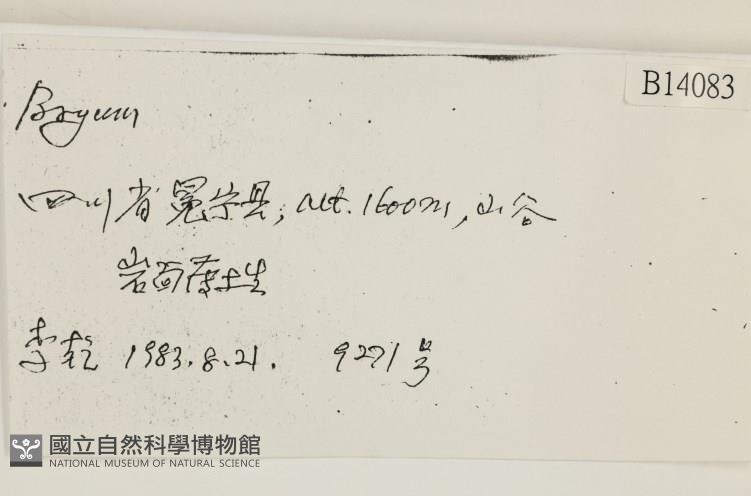 B14083
Bryum
四川省冕宁县, alt. 1600m, 山谷
岩面薄土生
李乾 1983.8.21. 9271号
國立自然科學博物館
NATIONAL MUSEUM OF NATURAL SCIENCE